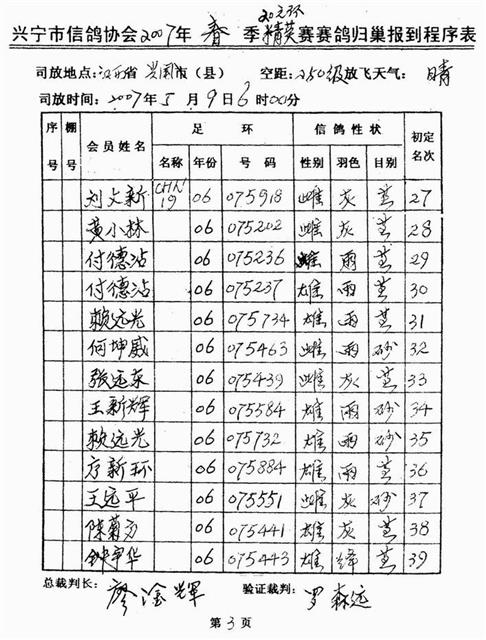 20元环
兴宁市信鸽协会2007年 春 季精英赛赛鸽归巢报到程序表
司放地点:江西省 兴国市（县） 空距:250级放飞天气: 晴
司放时间:2007年5月9日6时00分
序号 棚号 会员姓名 足环 信鸽性状 初定名次
名称 年份 号码 性别 羽色 目别
刘文新 CHN 19 06 075918 雌 灰 黄 27
黄小林 06 075202 雌 灰 黄 28
付德沾 06 075236 雌 雨 黄 29
付德沾 06 075237 雄 雨 黄 30
赖远光 06 075734 雄 雨 黄 31
何坤威 06 075463 雌 雨 砂 32
张远东 06 075439 雌 灰 黄 33
王新辉 06 075584 雄 雨 砂 34
赖远光 06 075732 雄 雨 砂 35
方新环 06 075884 雄 雨 黄 36
王远平 06 075551 雌 灰 砂 37
陈菊方 06 075441 雄 灰 黄 38
钟宇华 06 075443 雄 绛 黄 39
总裁判长: 廖淦辉 验证裁判: 罗森远
第3页